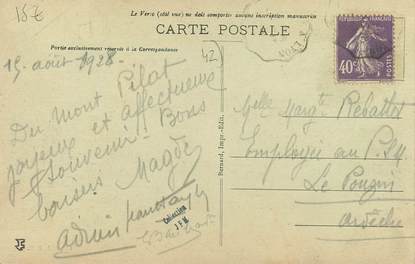 15€
Le Verso (côté vue) ne doit comporter aucune inscription manuscrite
CARTE POSTALE
Partie exclusivement réservée à la Correspondance
42
15 août 1928 -
Du Mont Pilat
joyeux et affectueux
souvenir - Bons
baisers Magde
Adrien
Collection
Bernard, Impr.-Édit.
RÉPUBLIQUE FRANÇAISE
40c
POSTES
Melle Margte Rebattet
Employée au P.L.M
Le Pouzin
Ardèche